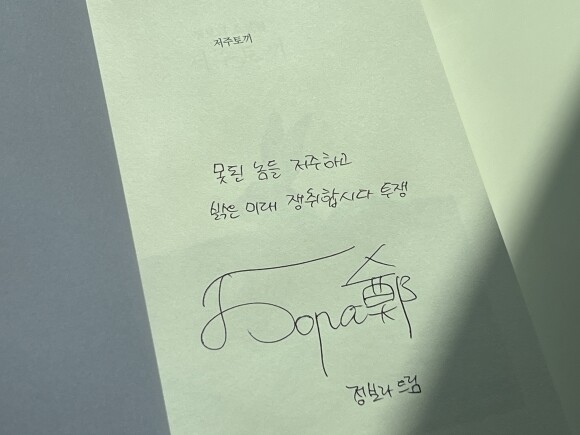 저주토끼
못된 놈들 저주하고
밝은 미래 쟁취합시다 투쟁
Бора鄭
정보라 드림